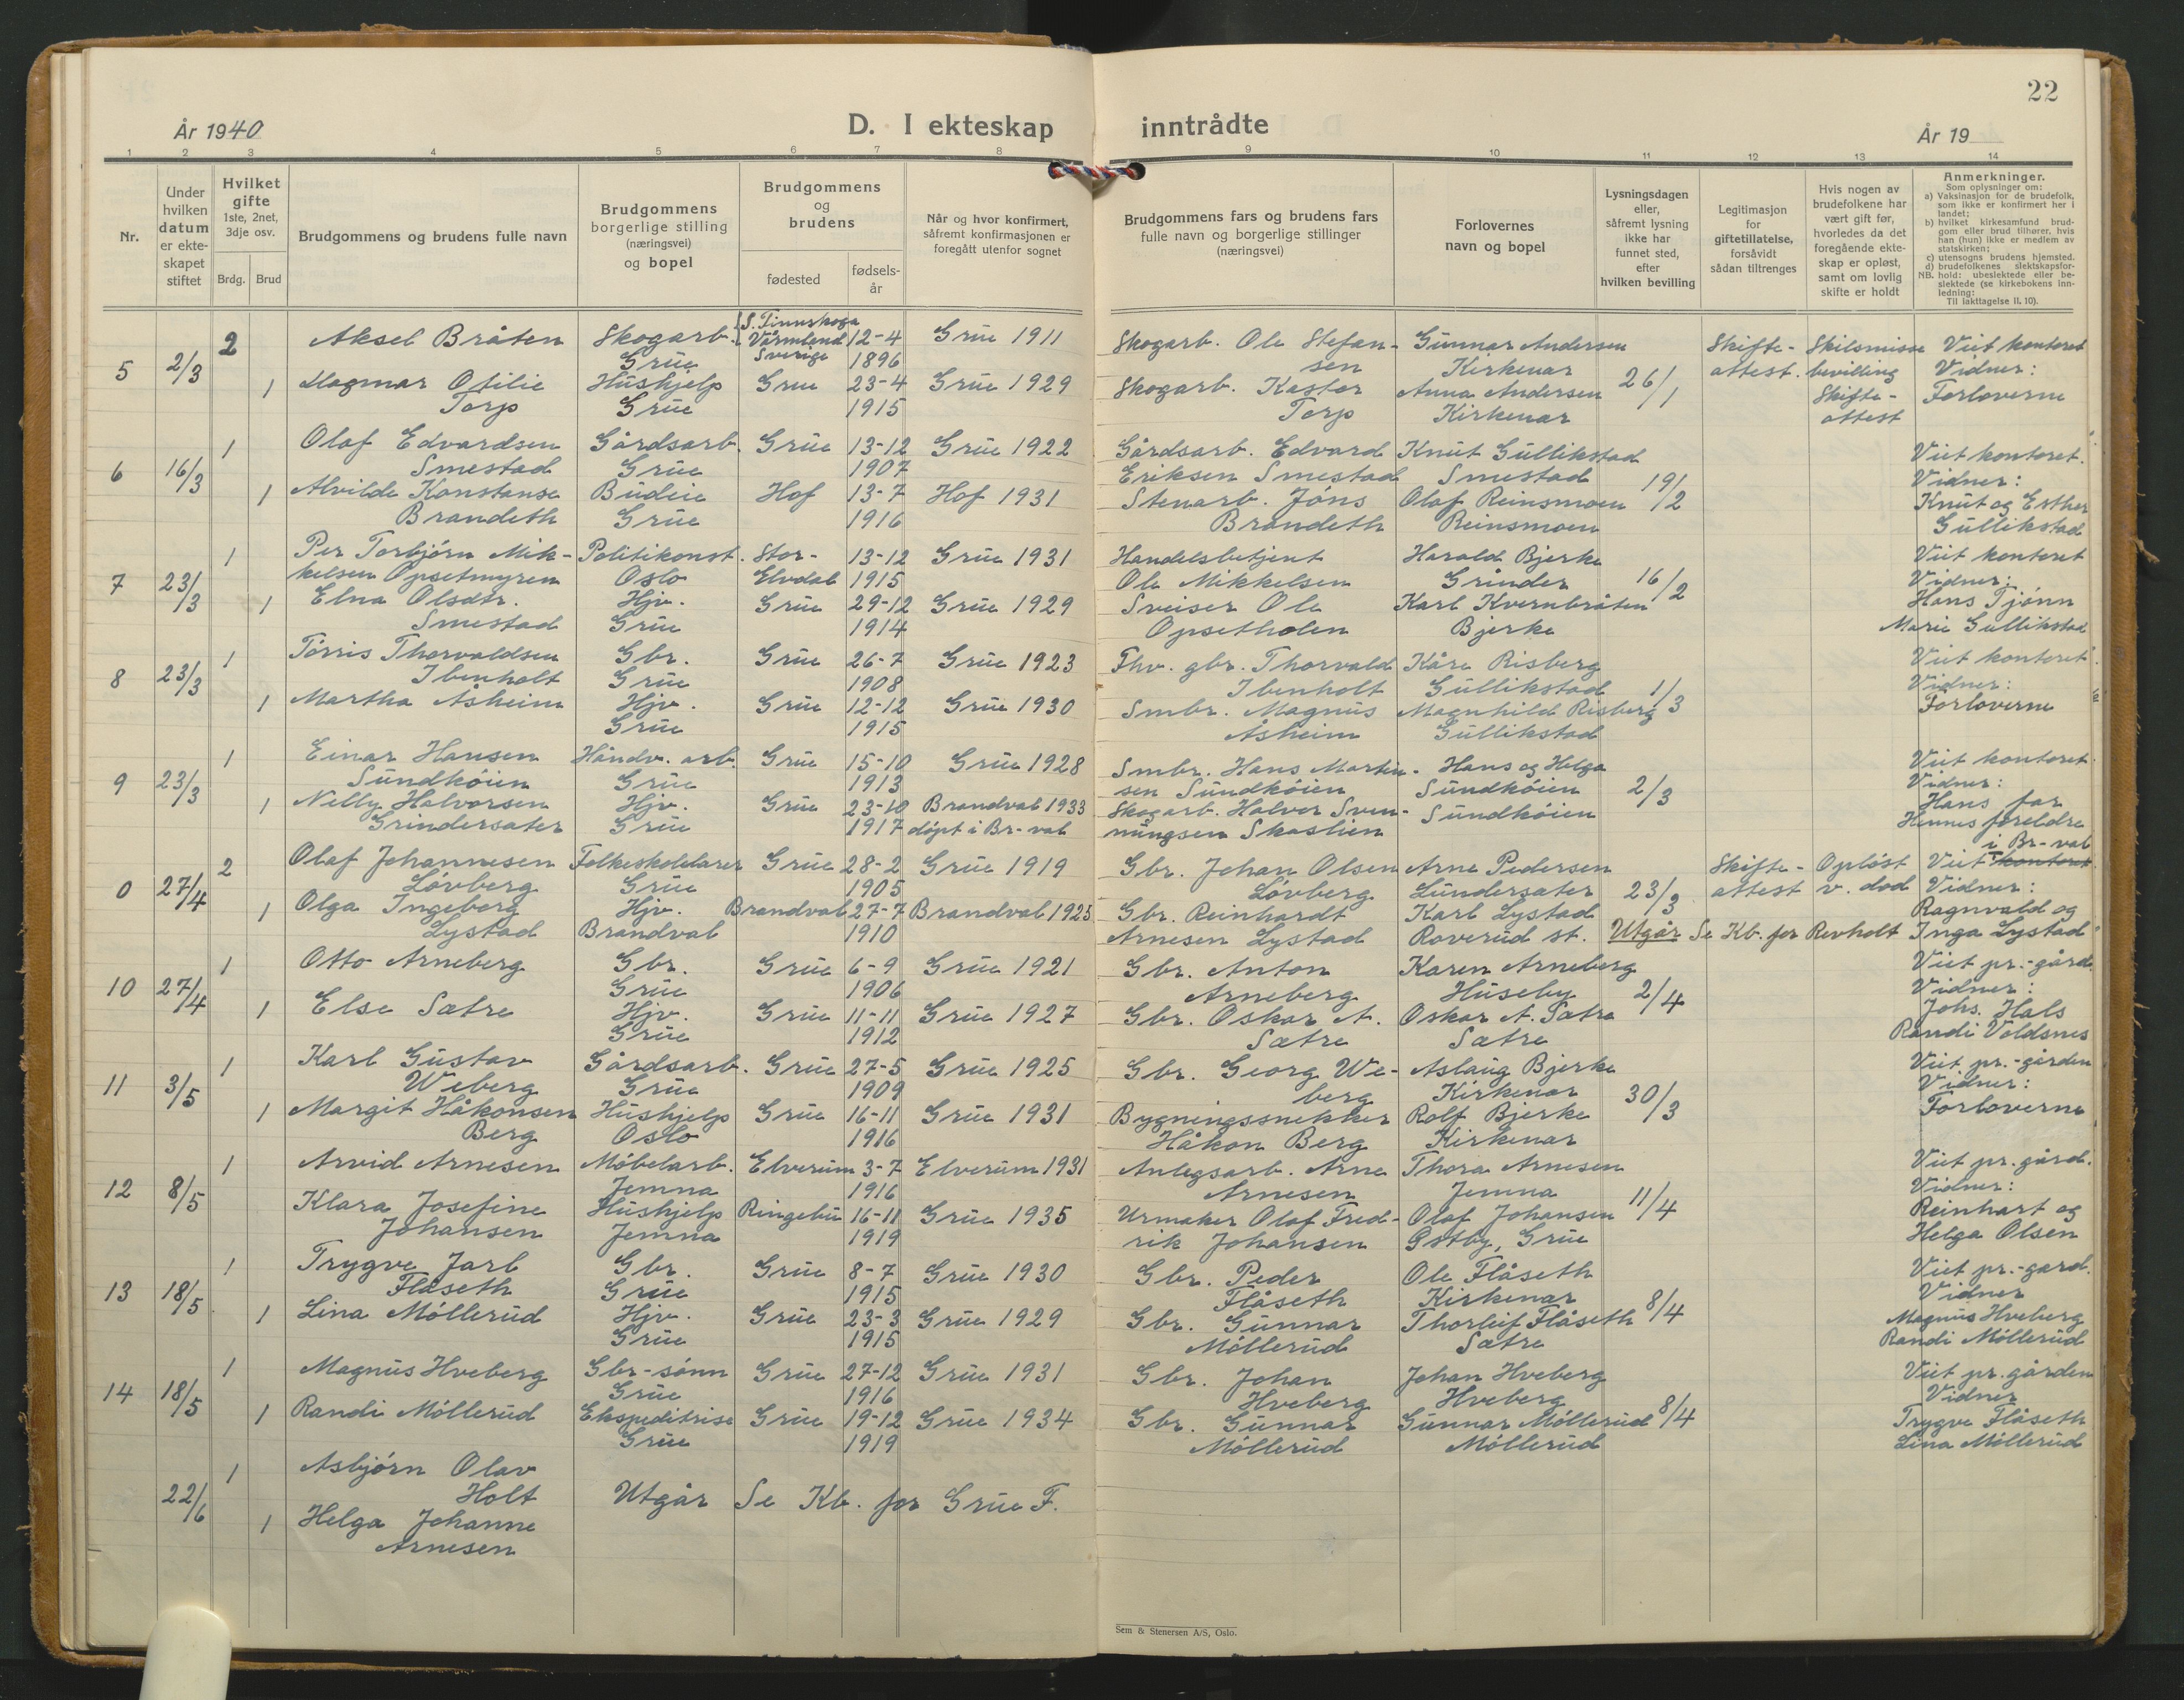 22
År 1940
D. I ekteskap inntrådte
År 19
1 2 3 4 5 6 7 8 9 10 11 12 13 14
Nr.
Under hvilken datum er ekteskapet stiftet
Hvilket gifte
1ste, 2net, 3dje osv.
Brdg. Brud
Brudgommens og brudens fulle navn
Brudgommens borgerlige stilling (næringsvei) og bopel
Brudgommens og brudens
fødested
fødselsår
Når og hvor konfirmert, såfremt konfirmasjonen er foregått utenfor sognet
Brudgommens fars og brudens fars fulle navn og borgerlige stillinger (næringsvei)
Forlovernes navn og bopel
Lysningsdagen eller, såfremt lysning ikke har funnet sted, efter hvilken bevilling
Legitimasjon for giftetillatelse, forsåvidt sådan tiltrenges
Hvis nogen av brudefolkene har vært gift før, hvorledes da det foregående ekteskap er opløst, samt om lovlig skifte er holdt
Anmerkninger.
Som oplysninger om:
a) Vaksinasjon for de brudefolk, som ikke er konfirmert her i landet;
b) hvilket kirkesamfund brudgom eller brud tilhører, hvis han (hun) ikke er medlem av statskirken;
c) utensogns brudens hjemsted.
d) brudefolkenes slektskapsforhold: ubeslektede eller beslektede (se kirkebokens innledning:
NB.
Til iakttagelse II. 10).
5 2/3 2 Aksel Bråten Skogarb. Grue S. Finnskoga Värmland Sverige 12-4 1896 Grue 1911 Skogarb. Ole Stefansen Gunnar Andersen Kirkenær 26/1 Skifteattest. Skilsmissebevilling Skifteattest Viet kontoret
1 Dagmar Otilie Torp Hushjelp Grue Grue 23-4 1915 Grue 1929 Skogarb. Kastor Torp Anna Andersen Kirkenær Vidner: Forloverne
6 16/3 1 Olaf Edvardsen Smestad Gårdsarb. Grue Grue 13-12 1907 Grue 1922 Gårdsarb. Edvard Eriksen Smestad Knut Gullikstad Smestad 19/2 Viet kontoret.
1 Alvilde Konstanse Brandeth Budeie Grue Hof 13-7 1916 Hof 1931 Stenarb. Jöns Brandeth Olaf Reinsmoen Reinsmoen Vidner: Knut og Esther Gullikstad
7 23/3 1 Per Torbjörn Mikkelsen Opsetmyren Politikonst. Oslo Stor-Elvdal 13-12 1915 Grue 1931 Handelsbetjent Ole Mikkelsen Harald Bjerke Grinder 16/2 Viet kontoret
1 Elna Olsdtr. Smestad Hjv. Grue Grue 29-12 1914 Grue 1929 Sveiser Ole Opsetholen Karl Kvernbråten Bjerke Vidner: Hans Tjönn Marie Gullikstad
8 23/3 1 Törris Thorvaldsen Ibenholt Gbr. Grue Grue 26-7 1908 Grue 1923 Fhv. gbr. Thorvald Ibenholt Kåre Risberg Gullikstad 1/3 Viet kontoret.
1 Martha Åsheim Hjv. Grue Grue 12-12 1915 Grue 1930 Smbr. Magnus Åsheim Magnhild Risberg Gullikstad Vidner: Forloverne
9 23/3 1 Einar Hansen Sundköien Håndv. arb. Grue Grue 15-10 1913 Grue 1928 Smbr. Hans Martinsen Sundköien Hans og Helga Sundköien Sundköien 2/3 Viet kontoret.
1 Nelly Halvorsen Grindersæter Hjv. Grue Grue 23-10 1917 Brandval 1933 döpt i Br-val Skogarb. Halvor Svenningsen Skaslien Vidner: Hans far Hennes foreldre
0 27/4 2 Olaf Johannesen Lövberg Folkeskolelærer Grue Grue 28-2 1905 Grue 1919 Gbr. Johan Olsen Lövberg Arne Pedersen Lundersæter 23/3 Skifteattest Oplöst v. död Viet kontoret i Br-val
1 Olga Ingeborg Lystad Hjv. Brandval Brandval 27-7 1910 Brandval 1925 Gbr. Reinhardt Arnesen Lystad Karl Lystad Roverud st. Utgår Se Kb. for Revholt Vidner: Ragnvald og Inga Lystad
10 27/4 1 Otto Arneberg Gbr. Grue Grue 6-9 1906 Grue 1921 Gbr. Anton Arneberg Karen Arneberg Huseby 2/4 Viet pr.-gård.
1 Else Sætre Hjv. Grue Grue 11-11 1912 Grue 1927 Gbr. Oskar A. Sætre Oskar A. Sætre Sætre Vidner: Johs. Hals Randi Voldsnes
11 3/5 1 Karl Gustav Weberg Gårdsarb. Grue Grue 27-5 1909 Grue 1925 Gbr. Georg Weberg Aslaug Bjerke Kirkenær 30/3 Viet pr.-gården
1 Margit Håkonsen Berg Hushjelp Oslo Grue 16-11 1916 Grue 1931 Bygningssnekker Håkon Berg Rolf Bjerke Kirkenær Vidner: Forloverne
12 8/5 1 Arvid Arnesen Möbelarb. Jemna Elverum 3-7 1916 Elverum 1931 Anlegsarb. Arne Arnesen Thora Arnesen Jemna 11/4 Viet pr. gård.
Klara Josefine Johansen Hushjelp Jemna Ringebu 16-11 1919 Grue 1935 Urmaker Olaf Fredrik Johansen Olaf Johansen Östby, Grue Vidner: Reinhart og Helga Olsen
13 18/5 1 Trygve Jarl Flåseth Gbr. Grue Grue 8-7 1915 Grue 1930 Gbr. Peder Flåseth Ole Flåseth Kirkenær 8/4 Viet pr.-gard.
1 Lina Möllerud Hjv. Grue Grue 23-3 1915 Grue 1929 Gbr. Gunnar Möllerud Thorleif Flåseth Sætre Vidner Magnus Hveberg Randi Möllerud
14 18/5 1 Magnus Hveberg Gbr-sönn Grue Grue 27-12 1916 Grue 1931 Gbr. Johan Hveberg Johan Hveberg Hveberg 8/4 Viet pr. gården
1 Randi Möllerud Ekspeditrise Grue Grue 19-12 1919 Grue 1934 Gbr. Gunnar Möllerud Gunnar Möllerud Möllerud Vidner Trygve Flåseth Lina Möllerud
22/6 1 Asbjörn Olav Holt Utgår Se Kb. for Grue F.
1 Helga Johanne Arnesen
Sem & Stenersen A/S, Oslo.